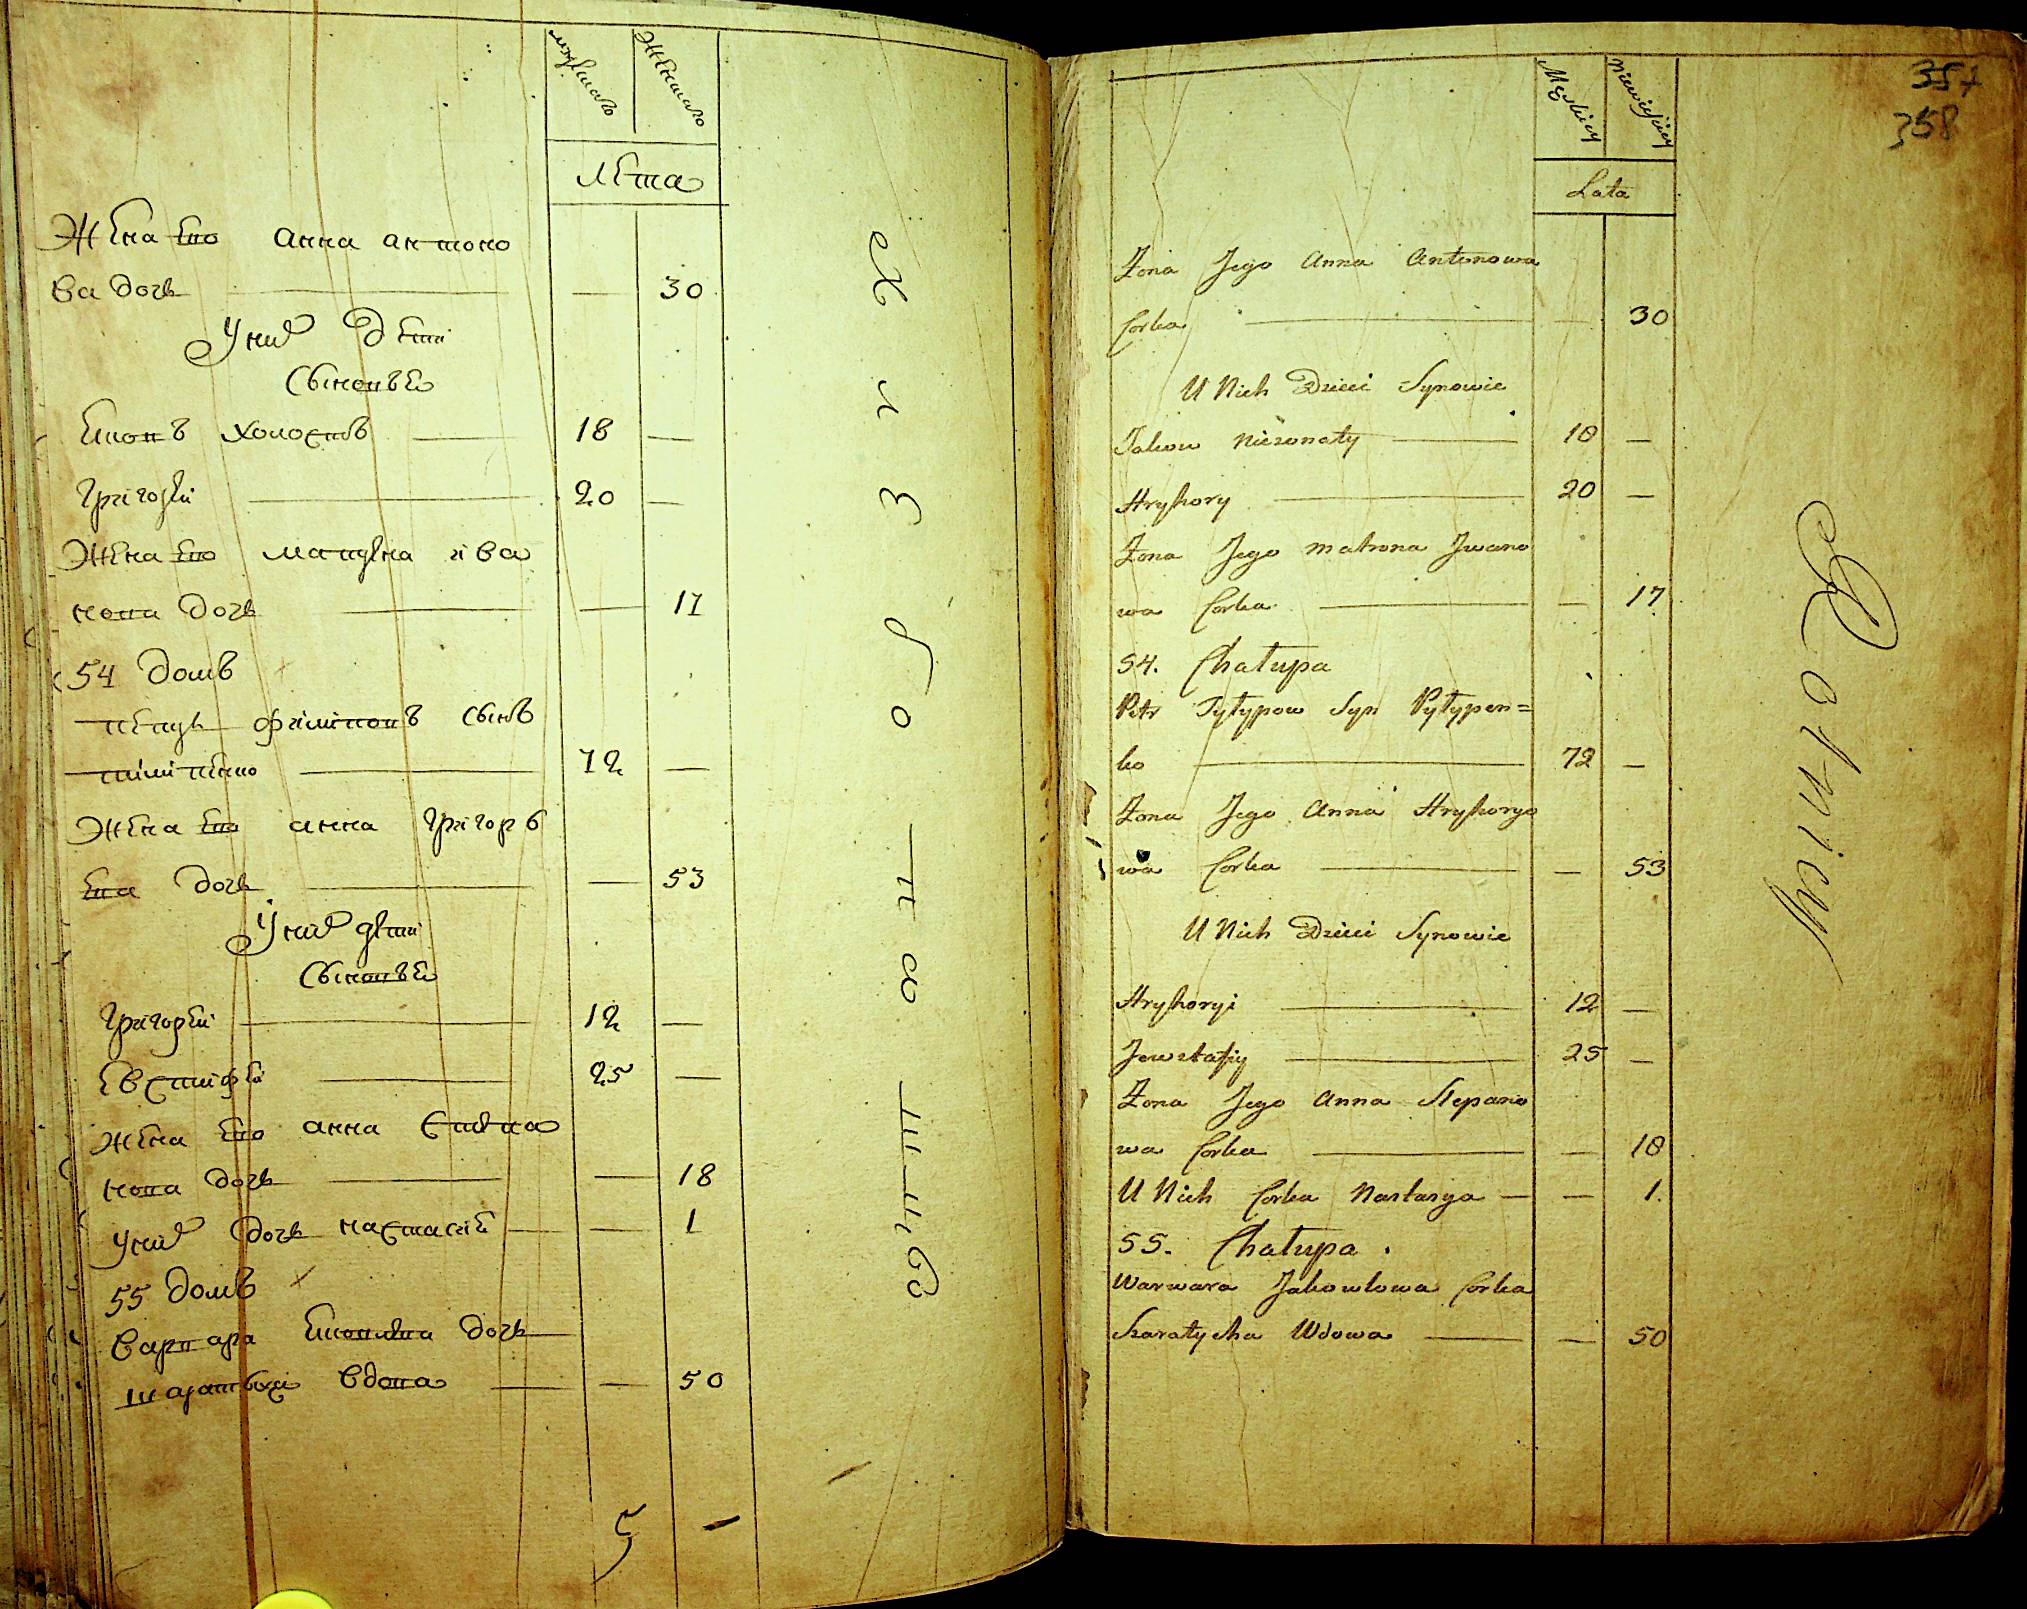 мужеска
женска
Лета
Жена его анна антоно
ва дочь 30
У них дети
Сыновья
Яковъ холостъ 18
Григорей 20
Жена его матрена ива
нова дочь 17
54 домъ
петръ филиповъ сынъ
72
Жена его анна Григорь
ева дочь 53
У них дети
Сыновья
Григорей 12
Евстафей 25
жена его анна Степа
нова дочь 18
У них дочь настасия 1
55 домъ
Варвара дочь
вдова 50
5
357
358
Męskiey
Niewieściey
Lata
Żona Jego Anna Antonowa
Corka 30
U Nich Dzieci Synowie
Jakow Nieżonaty 18
Hryhory 20
Żona Jego Matrona Jwano
wa Corka 17
54. Chałupa
Petr Syn Pyłypen=
ko 72
Żona Jego Anna Hryhorye
wa Corka 53
U Nich Dzieci Synowie
Hryhoryi 12
Jewstafiy 25
Żona Jego Anna Stepano
wa Corka 18
U Nich Corka Nastasya 1.
55. Chałupa.
Warwara Jakowlowa Corka
Szaratycha Wdowa 50